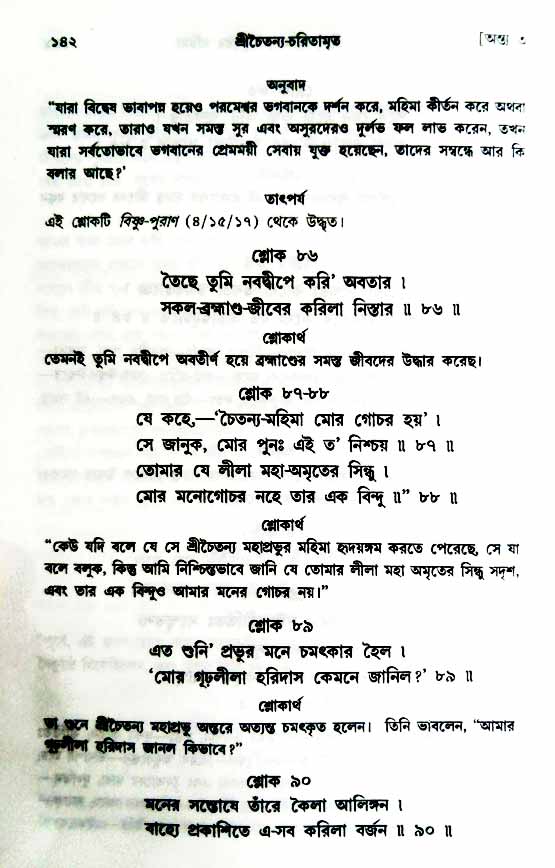 ১৪২ শ্রীচৈতন্য-চরিতামৃত [অন্ত্য ৩
অনুবাদ
“যারা বিদ্বেষ ভাবাপন্ন হয়েও পরমেশ্বর ভগবানকে দর্শন করে, মহিমা কীর্তন করে অথবা
স্মরণ করে, তারাও যখন সমস্ত সুর এবং অসুরদেরও দুর্লভ ফল লাভ করেন, তখন
যারা সর্বতোভাবে ভগবানের প্রেমময়ী সেবায় যুক্ত হয়েছেন, তাদের সম্বন্ধে আর কি
বলার আছে?’
তাৎপর্য
এই শ্লোকটি বিষ্ণু-পুরাণ (৪/১৫/১৭) থেকে উদ্ধৃত।
শ্লোক ৮৬
তৈছে তুমি নবদ্বীপে করি’ অবতার ।
সকল-ব্রহ্মাণ্ড-জীবের করিলা নিস্তার ॥ ৮৬ ॥
শ্লোকার্থ
তেমনই তুমি নবদ্বীপে অবতীর্ণ হয়ে ব্রহ্মাণ্ডের সমস্ত জীবদের উদ্ধার করেছ।
শ্লোক ৮৭-৮৮
যে কহে,—‘চৈতন্য-মহিমা মোর গোচর হয়’ ।
সে জানুক, মোর পুনঃ এই ত’ নিশ্চয় ॥ ৮৭ ॥
তোমার যে লীলা মহা-অমৃতের সিন্ধু ।
মোর মনোগোচর নহে তার এক বিন্দু ॥” ৮৮ ॥
শ্লোকার্থ
“কেউ যদি বলে যে সে শ্রীচৈতন্য মহাপ্রভুর মহিমা হৃদয়ঙ্গম করতে পেরেছে, সে যা
বলে বলুক, কিন্তু আমি নিশ্চিন্তভাবে জানি যে তোমার লীলা মহা অমৃতের সিন্ধু সদৃশ,
এবং তার এক বিন্দুও আমার মনের গোচর নয়।”
শ্লোক ৮৯
এত শুনি’ প্রভুর মনে চমৎকার হৈল ।
‘মোর গূঢ়লীলা হরিদাস কেমনে জানিল?’ ৮৯ ॥
শ্লোকার্থ
তা শুনে শ্রীচৈতন্য মহাপ্রভু অন্তরে অত্যন্ত চমৎকৃত হলেন। তিনি ভাবলেন, “আমার
গূঢ়লীলা হরিদাস জানল কিভাবে?”
শ্লোক ৯০
মনের সন্তোষে তাঁরে কৈলা আলিঙ্গন ।
বাহ্যে প্রকাশিতে এ-সব করিলা বর্জন ॥ ৯০ ॥